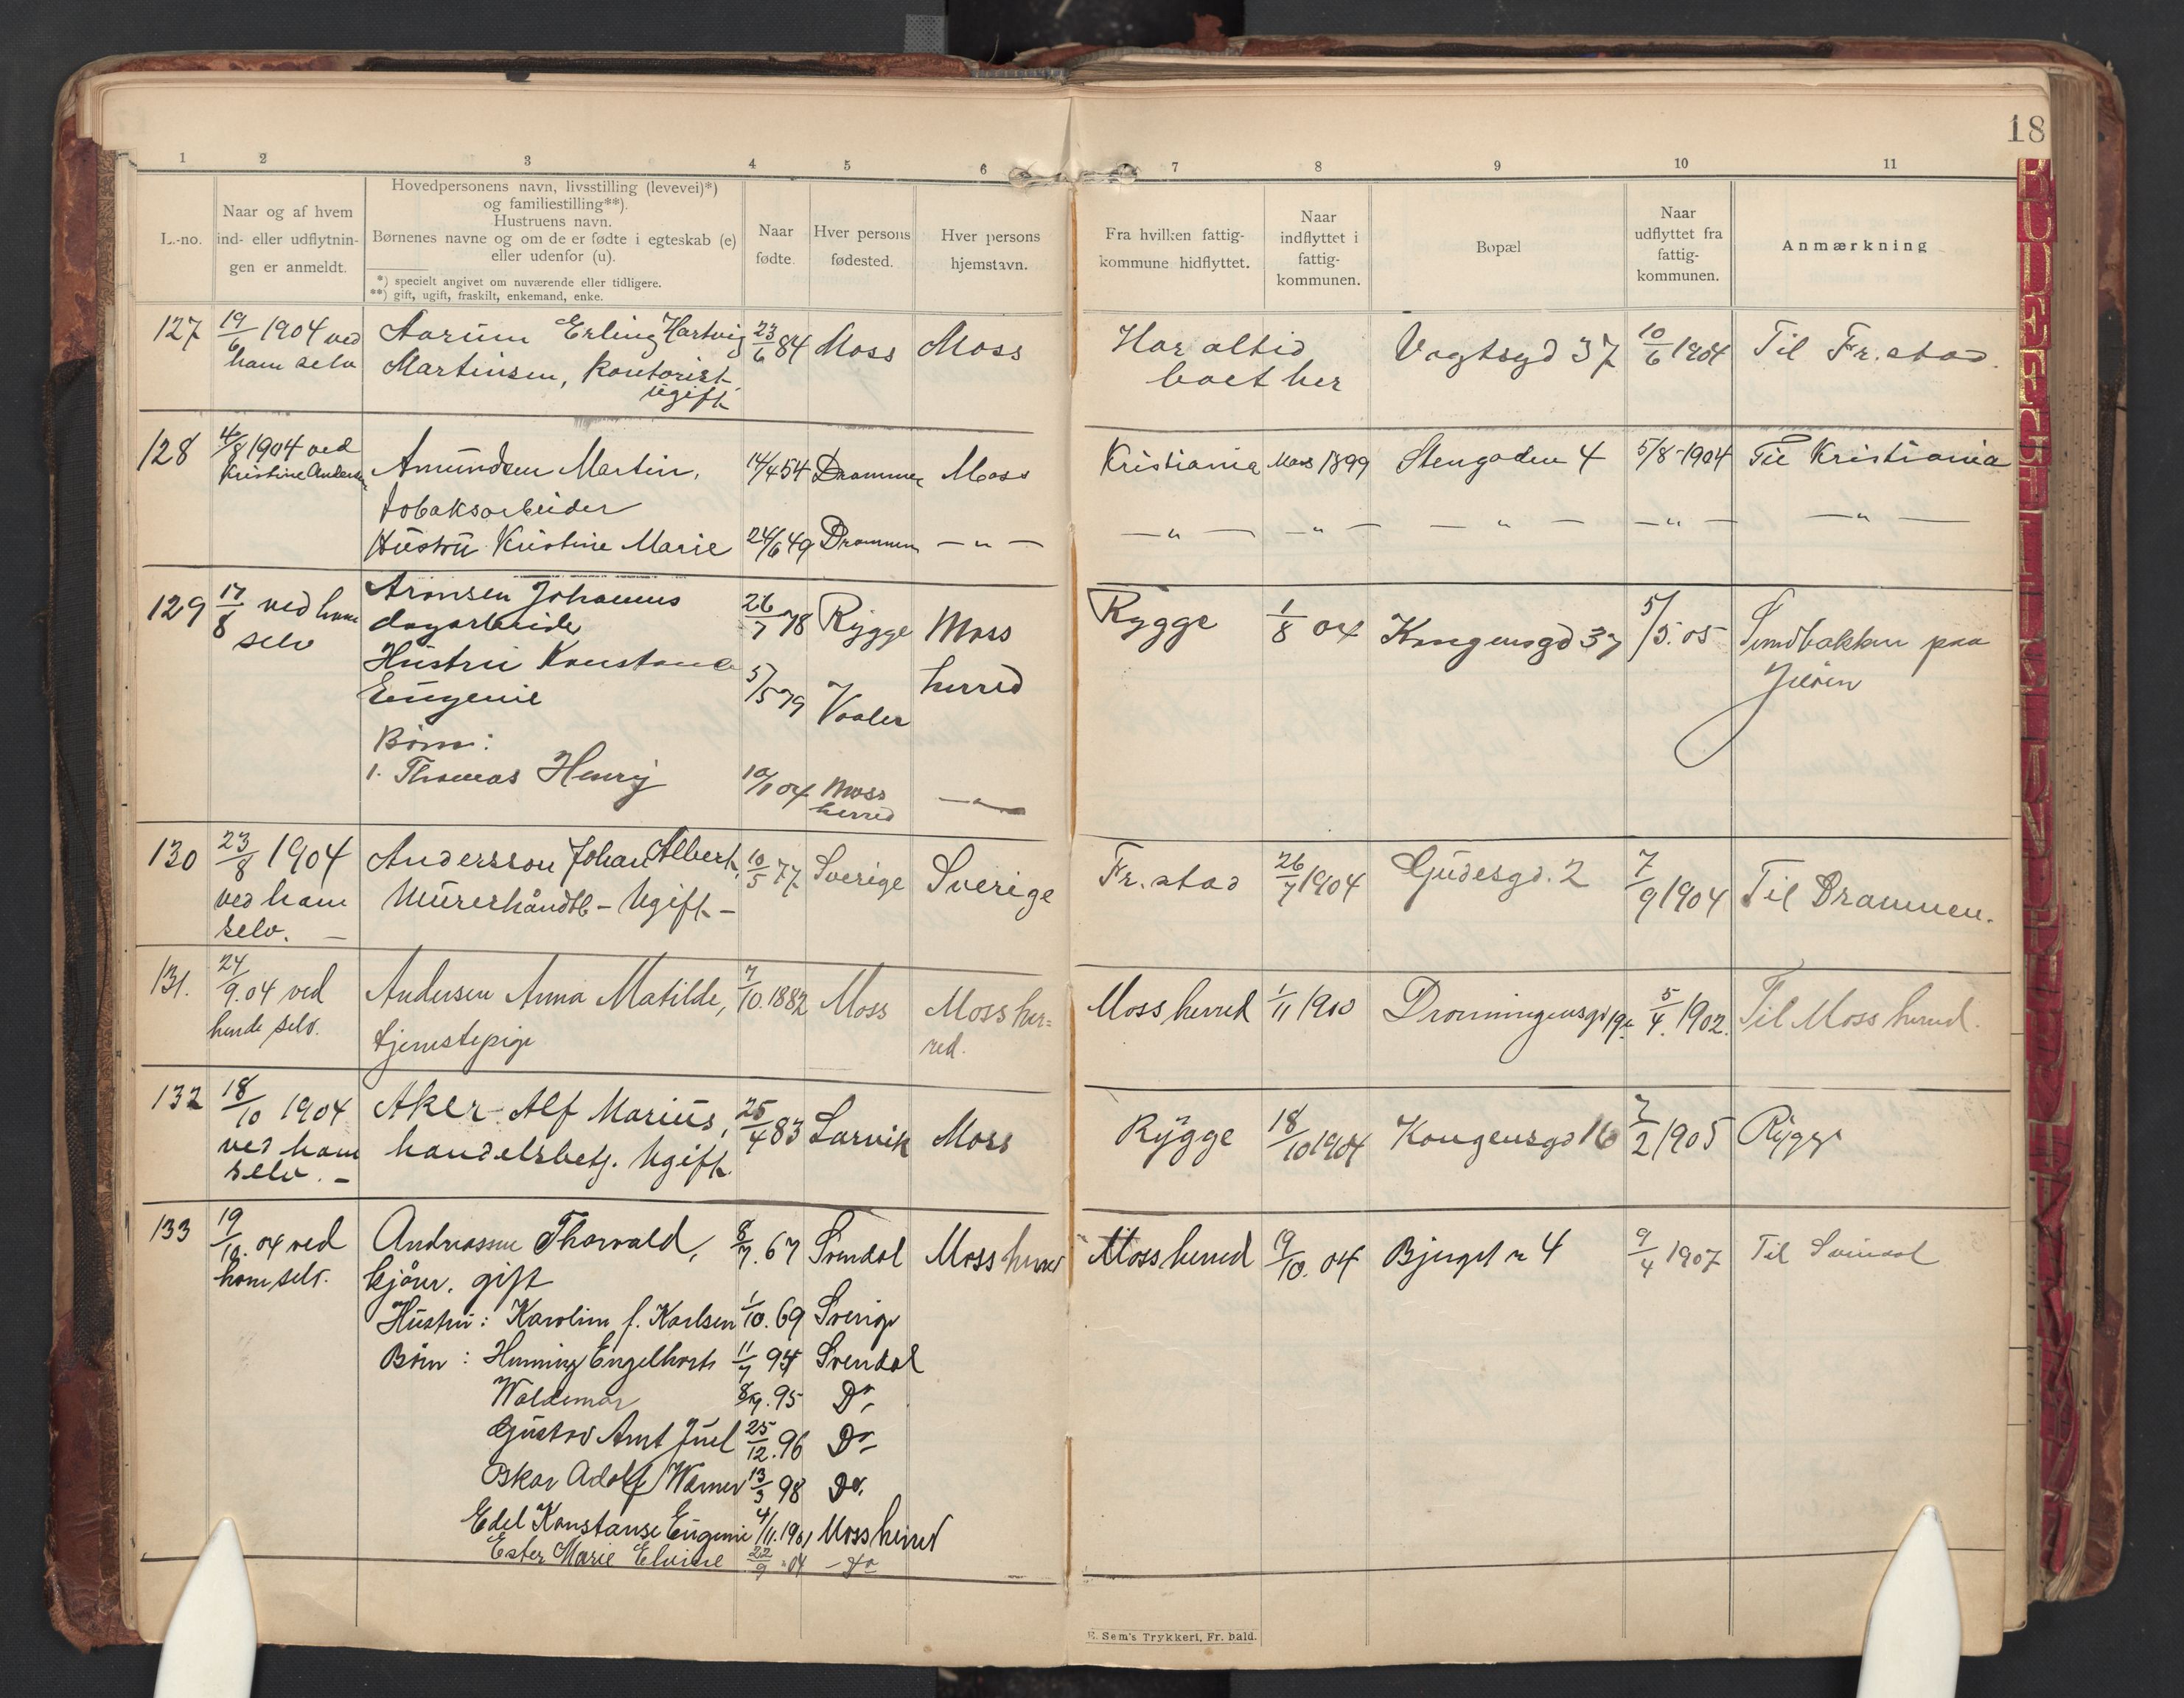 18
1 2 3 4 5 6 7 8 9 10 11
L.-no.
Naar og af hvem
ind- eller udflytnin-
gen er anmeldt.
Hovedpersonens navn, livsstilling (levevei)*)
og familiestilling**).
Hustruens navn.
Børnenes navne og om de er fødte i egteskab (e)
eller udenfor (u).
*) specielt angivet om nuværende eller tidligere.
**) gift, ugift, fraskilt, enkemand, enke.
Naar
fødte.
Hver persons
fødested.
Hver persons
hjemstavn.
Fra hvilken fattig-
kommune hidflyttet.
Naar
indflyttet i
fattig-
kommunen.
Bopæl
Naar
udflyttet fra
fattig-
kommunen.
Anmærkning
127 19/6 1904 ved Aarum Erling Hartvig 23/6 84 Moss Moss Har altid Vogtsgd 37 10/6 1904 Til Fr.stad.
ham selv Martinsen, kontorist boet her
ugift
128 4/8 1904 ved Amundsen Martin, 14/4 54 Drammen Moss Kristiania Mars 1899 Stengaden 4 5/8-1904 Til Kristiania
Kristine Andersen
tobaksarbeider
Hustru Kristine Marie 24/6 49 Drammen — " — — " — — " — — " — — " — — " —
129 17/8 ved ham Aronsen Johannes 26/7 78 Rygge Moss Rygge 1/8 04 Kongensgd 37 5/5.05 Sundbakken paa
selv dagarbeider herred Jeløen
Hustru Konstanse 5/5 79 Vaaler
Eugenie
Børn:
1. Thomas Henry 10/1 04 Moss — " —
herred
130 23/8 1904 Andersson Johan Albert, 10/5 77 Sverige Sverige Fr.stad 26/7 1904 Gudesgd. 2 7/9 1904 Til Drammen.
ved ham Murerhåndtl - Ugift -
selv. —
131. 24/9.04 ved Andersen Anna Matilde, 7/10.1882 Moss Moss her= Moss herred 1/11 1900 Dronningensgd 19 5/4. 1902. Til Moss herred.
hende selv. tjenestepige red.
132 18/10 1904 Aker Alf Marius, 25/4 83 Larvik Moss Rygge 18/10 1904 Kongensgd 16 7/2 1905 Rygge
ved ham handelsbetj. Ugift.
selv. -
133 19/10. 04 ved Andreassen Thorvald, 8/7. 67 Svendal Moss herred Moss herred 19/10. 04 Bjergd n 4 9/4 1907 Til Svindal
ham selv. kjører. gift
Hustru: Karoline f. Karlsen 1/10. 69 Sverige
Børn: Henning Engelhart 11/7 94 Svendal
Waldemar 8/9. 95 Do
Gustav Arnt Juel 25/12. 96 Do
Oskar Adolf Werner 13/3 98 Do.
Edel Konstanse Eugenie 4/11.1901 Moss herred
Ester Marie Elvine 22/9 04 - do
E. Sem's Trykkeri, Fr. hald.